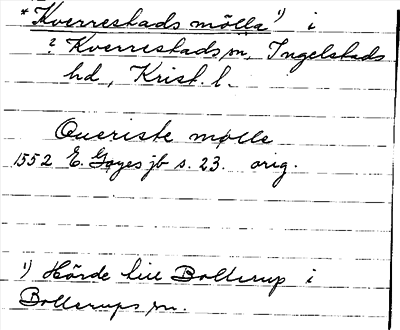 *Kverrestads mölla¹) i
? Kverrestads sn, Ingelstads
hd, Krist. l.
Querisste mølle
1552 E. Gøyes jb s. 23. orig.
¹) Hörde till Bollerup i
Bollerups sn.